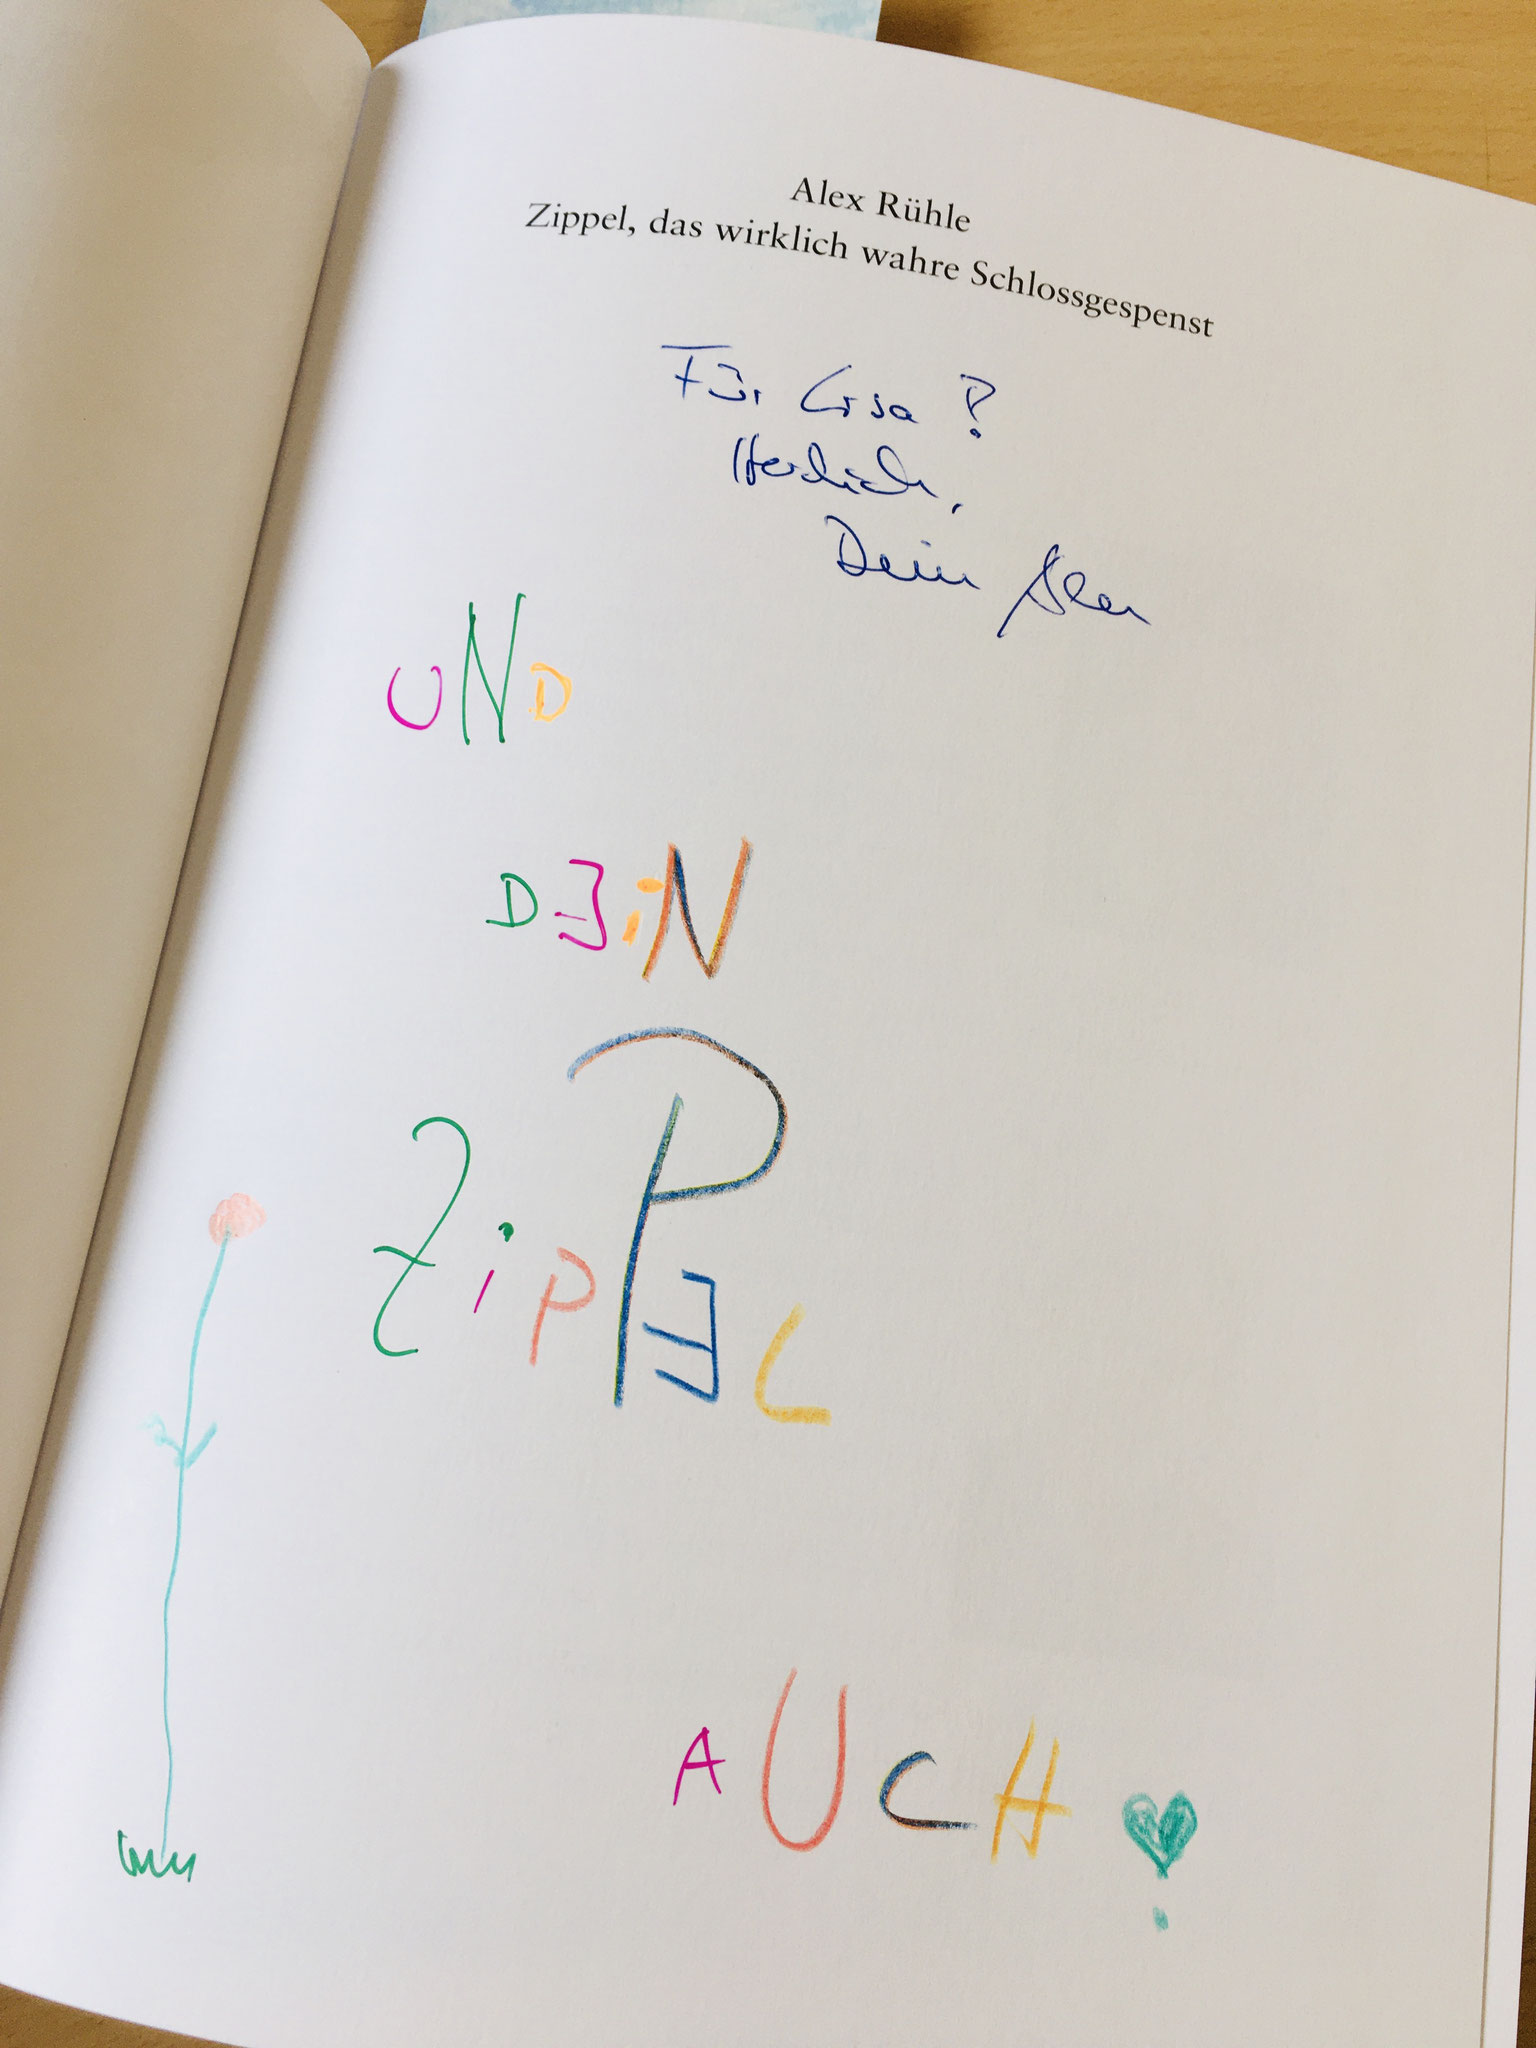 Alex Rühle
Zippel, das wirklich wahre Schlossgespenst
Für Lisa!
Herzlich,
Dein Alex
UND
DEiN
ZiPPEL
AUCH!